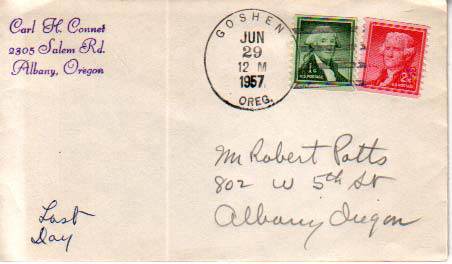 Carl H. Connet
2305 Salem Rd.
Albany, Oregon
GOSHEN
JUN
29
12 M
1957
OREG.
1¢
U.S. POSTAGE
2¢
U.S. POSTAGE
Mr Robert Potts
802 W 5th St
Albany Oregon
Last
Day